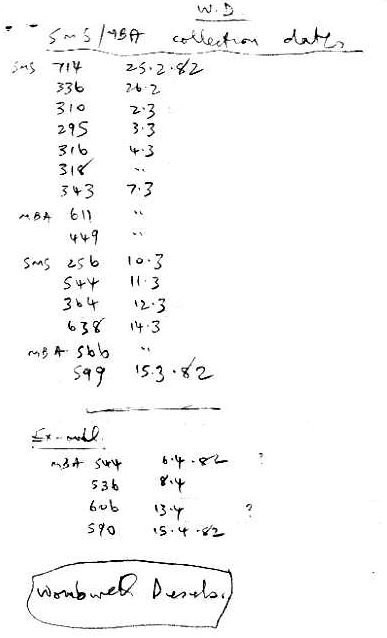 W.D.
SMS/MBA collection dates
SMS 714 25.2.82
336 26.2
310 2.3
295 3.3
316 4.3
318 "
343 7.3
MBA 611 "
449 "
SMS 256 10.3
544 11.3
364 12.3
638 14.3
MBA 566 "
599 15.3.82
MBA 544 6.4.82 ?
536 8.4
606 13.4 ?
590 15.4.82
Wombwell Diesels.